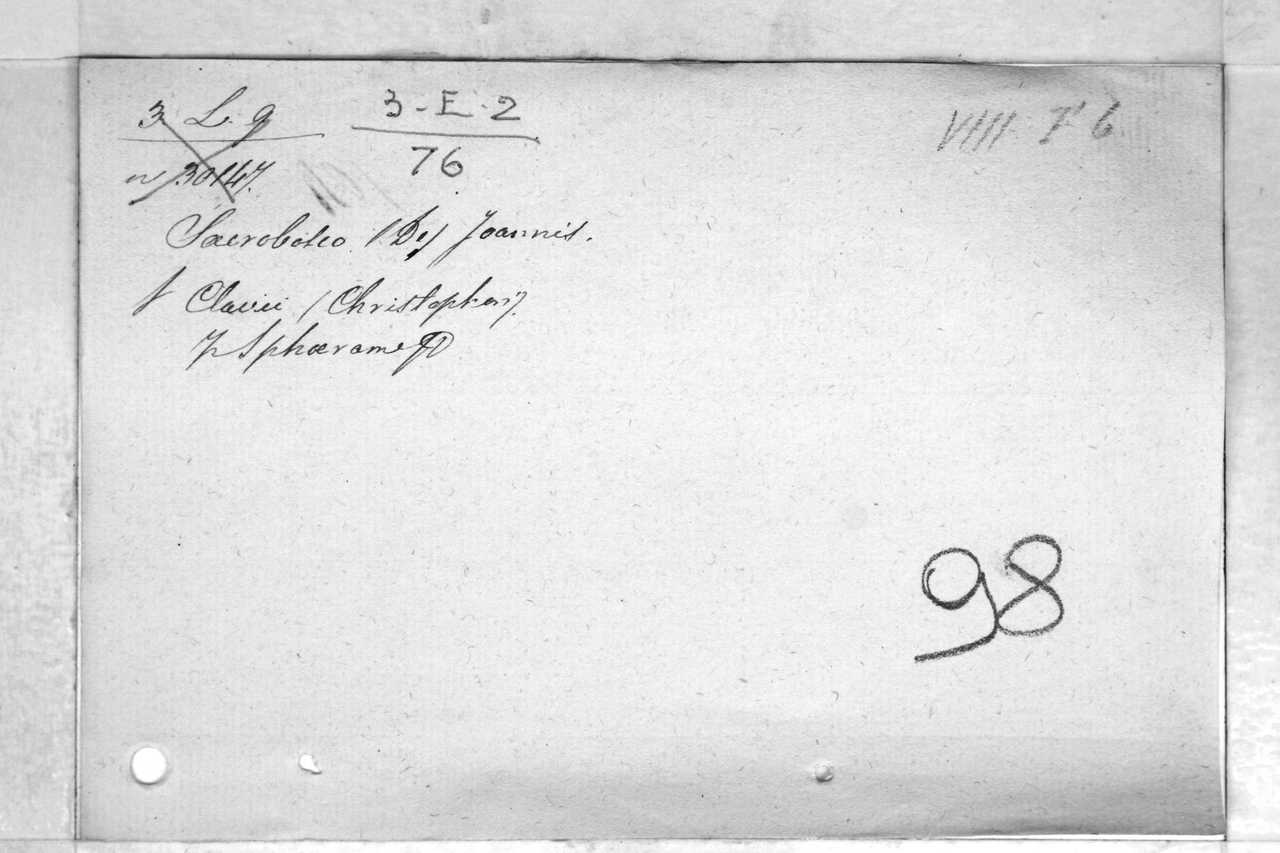 3 L 9
3-E-2
VIIII
6
30147
76
Sacrobosco (De) Joannis.
Clavii (Christophori)
Sphæram
98